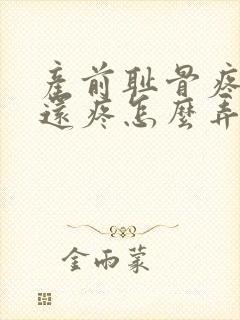 產前耻骨疼
還疼怎麼弄
金雨蒙